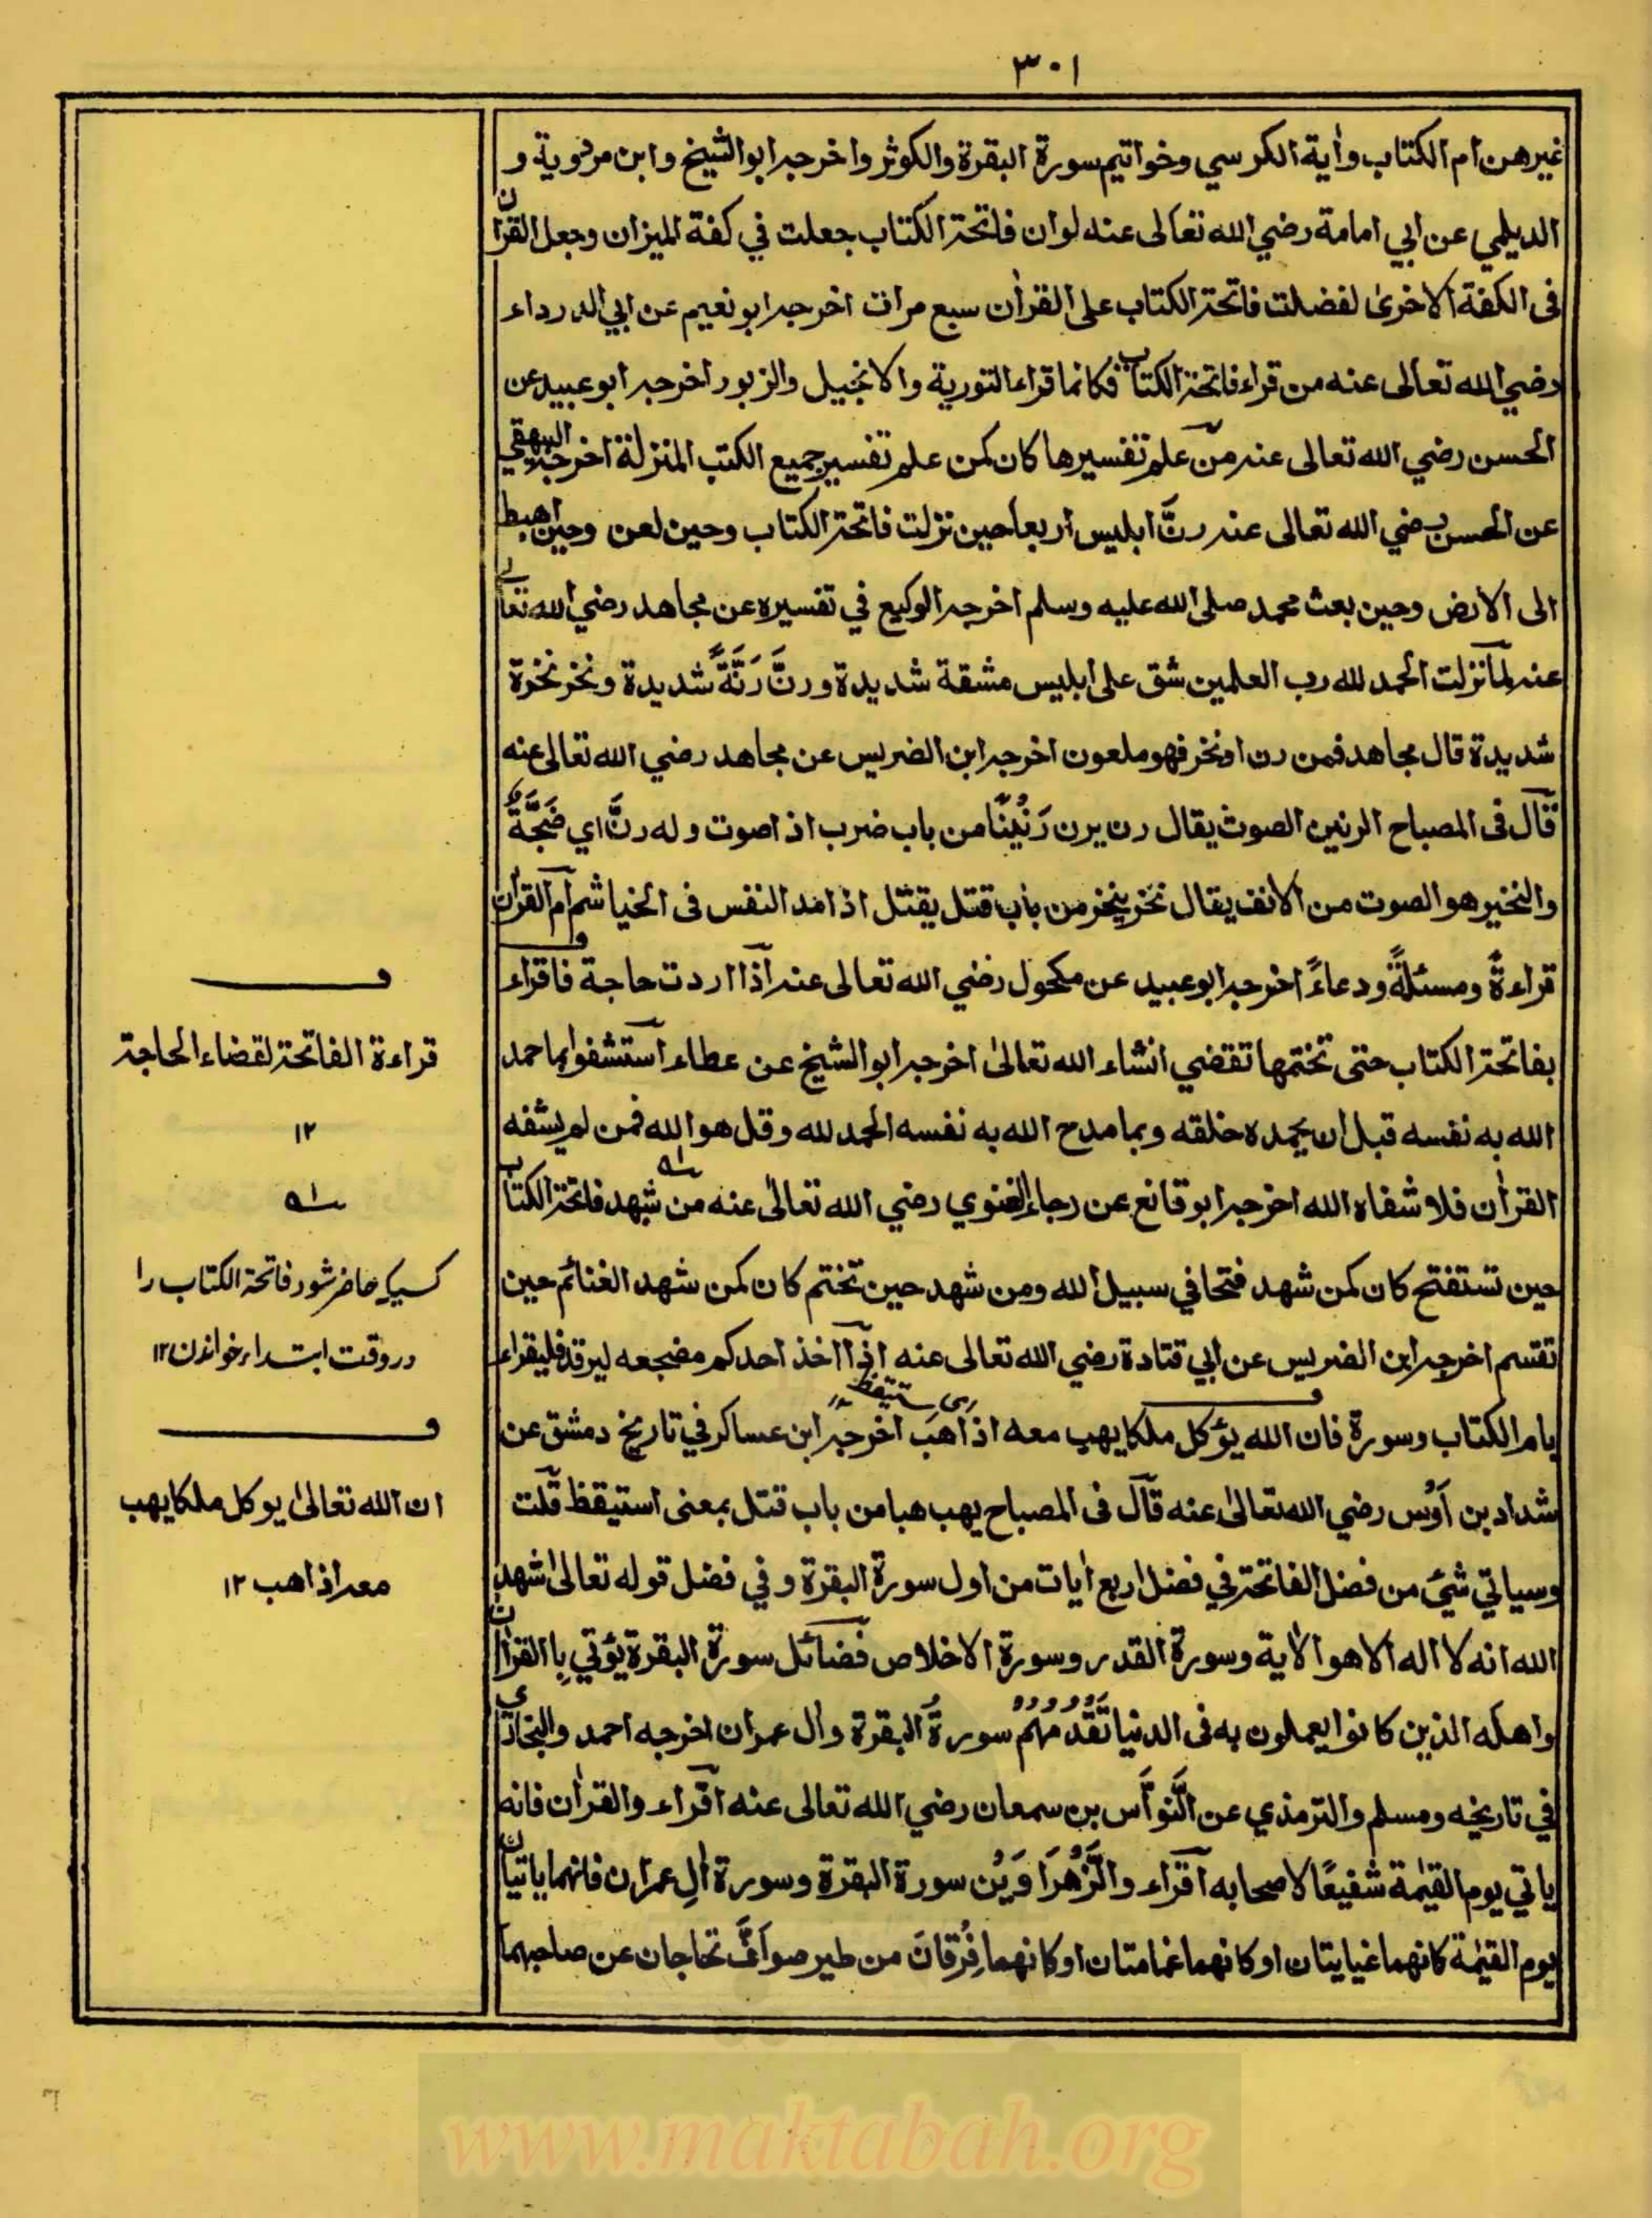 ٣٠١
غيرهن ام الكتاب واٰية الكرسي وخواتيم سورة البقرة والكوثر واخرجه ابو الشيخ وابن مردوية و
الديلمي عن ابي امامة رضي الله تعالى عنه لو ان فاتحة الكتاب جعلت في كفة الميزان وجعل القراٰن
في الكفة الاخرىٰ لفضلت فاتحة الكتاب على القراٰن سبع مرات اخرجه ابو نعيم عن ابي الدرداء
رضي الله تعالى عنه من قراء فاتحة الكتاب فكانما قراء التورية والانجيل والزبور اخرجه ابو عبيد عن
الحسن رضي الله تعالى عنه من علم تفسيرها كان كمن علم تفسير جميع الكتب المنزلة اخرجه البيهقي
عن الحسن رضي الله تعالى عنه رنَّ ابليس اربعا حين نزلت فاتحة الكتاب وحين لعن وحين اهبط
الى الارض وحين بعث محمد صلى الله عليه وسلم اخرجه الوكيع في تفسيره عن مجاهد رضي الله تعالى
عنه لما نزلت الحمد لله رب العلمين شق على ابليس مشقة شديدة ورنَّ رَنَّةً شديدة ونخر نخرة
شديدة قال مجاهد فمن رن او نخر فهو ملعون اخرجه ابن الضريس عن مجاهد رضي الله تعالى عنه
قال في المصباح الرنين الصوت يقال رن يرن رَنِيْنًا من باب ضرب اذا صوت وله رنَّة اي ضَجَّةٌ
والنخير هو الصوت من الانف يقال نخر ينخر من باب قتل يقتل اذا مد النفس في الخياشم ام القراٰن
قراءةٌ ومسئلةٌ ودعاءٌ اخرجه ابو عبيد عن مكحول رضي الله تعالى عنه اذا اردت حاجة فاقراء
بفاتحة الكتاب حتى تختمها تقضي انشاء الله تعالىٰ اخرجه ابو الشيخ عن عطاء استشفوا بما حمد
الله به نفسه قبل ان يحمده خلقه وبما مدح الله به نفسه الحمد لله وقل هو الله فمن لم يشفه
القراٰن فلا شفاه الله اخرجه ابو قانع عن رجاء الغنوي رضي الله تعالىٰ عنه من شهد فاتحة الكتاب
حين تستفتح كان كمن شهد فتحا في سبيل الله ومن شهد حين تختم كان كمن شهد الغنائم حين
تقسم اخرجه ابن الضريس عن ابي قتادة رضي الله تعالى عنه اذا اخذ احدكم مضجعه ليرقد فليقراء
بام الكتاب وسورة فان الله يؤكل ملكا يهب معه اذا هَبَّ اخرجه ابن عساكر في تاريخ دمشق عن
شداد بن اَوْس رضي الله تعالىٰ عنه قال في المصباح يهب هبا من باب قتل بمعنى استيقظ قلت
وسياتي شئ من فضل الفاتحة في فضل اربع اٰيات من اول سورة البقرة و في فضل قوله تعالىٰ شهد
الله انه لا اله الا هو الاٰية وسورة القدر وسورة الاخلاص فضائل سورة البقرة يؤتي بِا القراٰن
واهله الذين كانوا يعملون به في الدنيا تَقْدُمُهُمْ سورةُ البقرة واٰل عمران اخرجه احمد والبخاري
في تاريخه ومسلم والترمذي عن النَّوَّاس بن سمعان رضي الله تعالى عنه اقراء والقراٰن فانه
ياتي يوم القيٰمة شفيعًا لاصحابه اقراء والزَّهْرَاوَيْن سورة البقرة وسورة اٰلِ عمران فانهما ياتيان
يوم القيٰمة كانهما غيايتان او كانهما غمامتان او كانهما فِرْقانَ من طير صوافَّ تحاجان عن صاحبهما
قراءة الفاتحة لقضاء الحاجة
١٢
كسيكه حاضر شود فاتحة الكتاب را
در وقت ابتداء خواندن ١٢
ان الله تعالىٰ يوكل ملكا يهب
معه اذا هب ١٢
www.maktabah.org